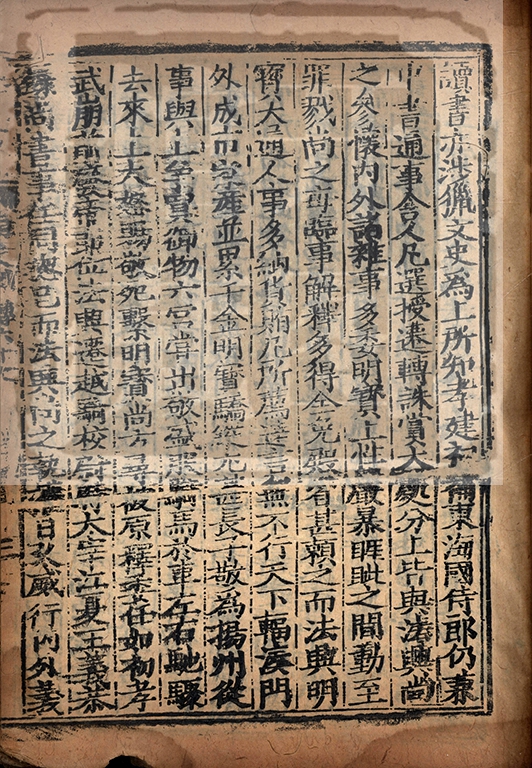 讀書亦涉獵文史爲上所知孝建初補東海國侍郎仍兼
中書通事舍人凡選授遷轉誅賞大處分上皆與法興尚
之參懷内外諸雜事多委明寶上性嚴暴睚眦之間動至
罪戮尚之每臨事解釋多得全免殿省甚賴之而法興明
寶大通人事多納貨賄凡所薦達言無不行天下輻湊門
外成市家產並累千金明寶驕縱尤甚長子敬爲揚州從
事與上爭買御物六宮嘗出敬盛服騎馬於車左右馳驟
去來上大怒賜敬死繫明寶尚方尋被原釋委任如初孝
武崩前廢帝即位法興遷越騎校尉時太宰江夏王義恭
錄尚書事任同總己而法興尚之執權日久威行内外義